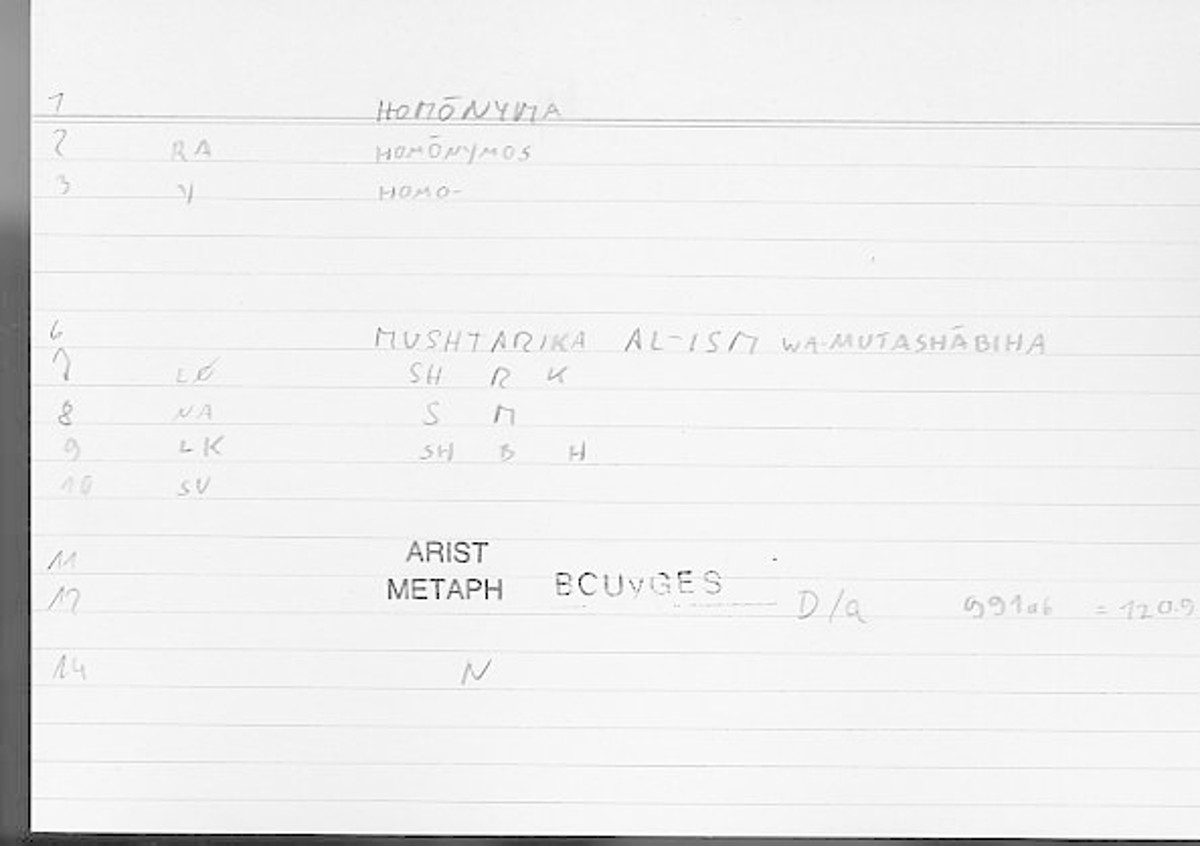 1 HOMŌNYMA
2 RA HOMŌNYMOS
3 Y HOMO-
6 MUSHTARIKA AL-ISM WA-MUTASHĀBIHA
7 LØ SH R K
8 NA S M
9 LK SH B H
10 SV
11 ARIST
12 METAPH BCUvGES D/a 991a6 = 120.9
14 N